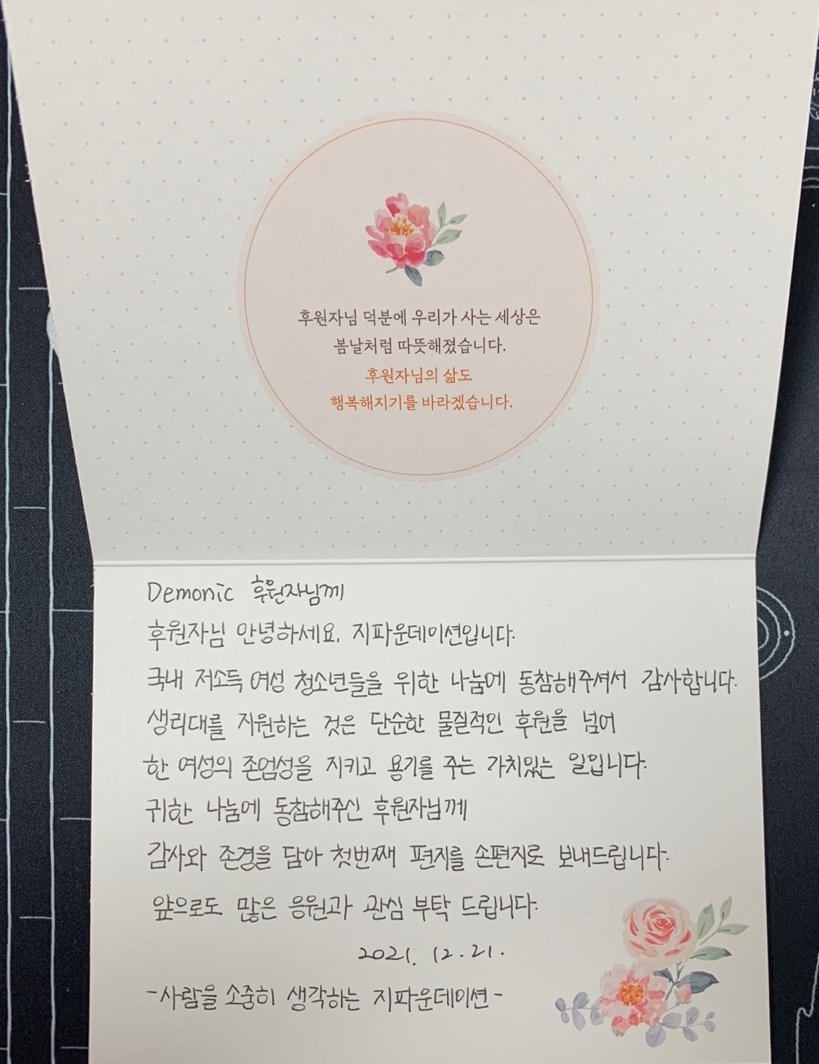 후원자님 덕분에 우리가 사는 세상은
봄날처럼 따뜻해졌습니다.
후원자님의 삶도
행복해지기를 바라겠습니다.
Demonic 후원자님께
후원자님 안녕하세요. 지파운데이션입니다.
국내 저소득 여성 청소년들을 위한 나눔에 동참해주셔서 감사합니다.
생리대를 지원하는 것은 단순한 물질적인 후원을 넘어
한 여성의 존엄성을 지키고 용기를 주는 가치있는 일입니다.
귀한 나눔에 동참해주신 후원자님께
감사와 존경을 담아 첫번째 편지를 손편지로 보내드립니다.
앞으로도 많은 응원과 관심 부탁 드립니다.
2021. 12. 21.
-사람을 소중히 생각하는 지파운데이션-